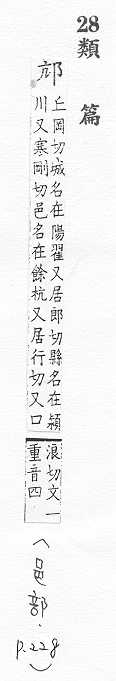 28類篇
邟
丘岡切城名在陽翟又居郎切縣名在潁
川又寒剛切邑名在餘杭又居行切又口
浪切文一
重音四
(邑部.
p.228)